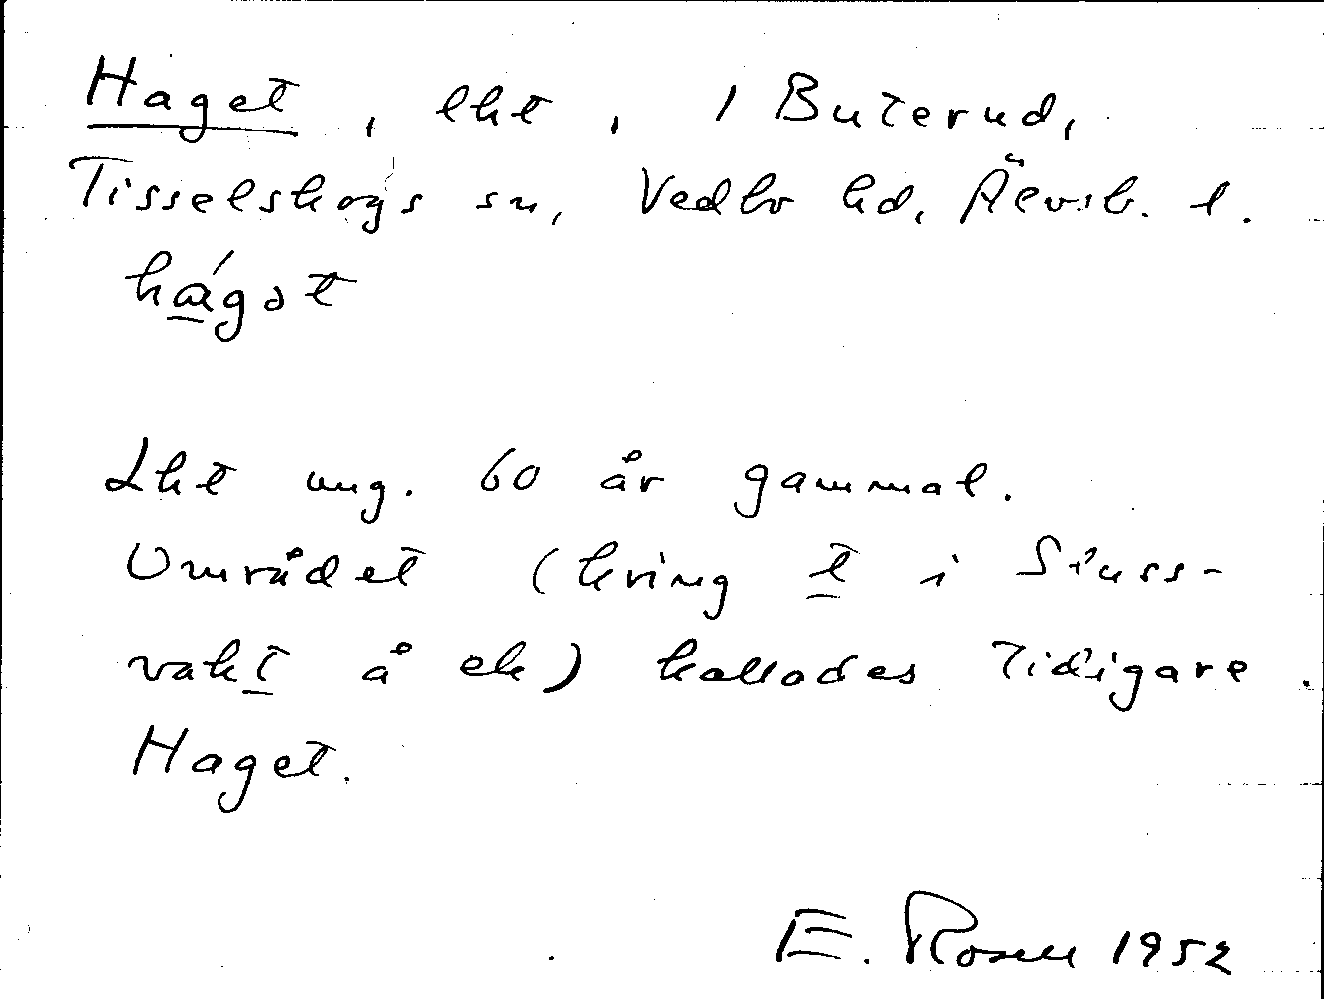 Haget, lht, 1 Buterud,
Tisselskogs sn, Vedbo hd, Älvsb. l.
hágət
Lht ung. 60 år gammal.
Området (kring t i Sluss-
vakt å ek) kallades tidigare
Haget.
E. Rosell 1952